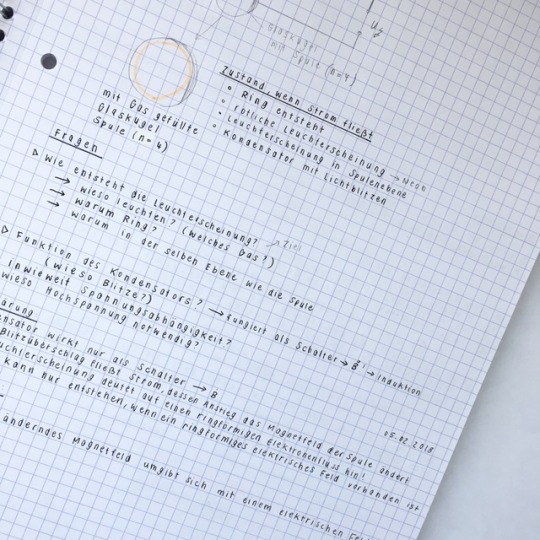 Glaskugel
mit Spule (n=4)
mit Gas gefüllte
Glaskugel
Spule (n=4)
Zustand, wenn Strom fließt
Ring entsteht
rötliche Leuchterscheinung → Neon
Leuchterscheinung in Spulenebene
Kondensator mit Lichtblitzen
Fragen
▷ Wie entsteht die Leuchterscheinung? → Ziel
→ wieso leuchten? (welches Gas?)
→ warum Ring?
→ warum in der selben Ebene wie die Spule
▷ Funktion des Kondensators? → fungiert als Schalter → B → Induktion
(wieso Blitze?)
inwieweit Spannungsabhängigkeit?
wieso Hochspannung notwendig?
05.02.2018
ensator wirkt nur als Schalter → B
Blitzüberschlag fließt Strom, dessen Anstieg das Magnetfeld der Spule ändert
uchterscheinung deutet auf einen ringförmigen Elektronenfluss hin!
kann nur entstehen, wenn ein ringförmiges elektrisches Feld vorhanden ist
änderndes Magnetfeld umgibt sich mit einem elektrischen